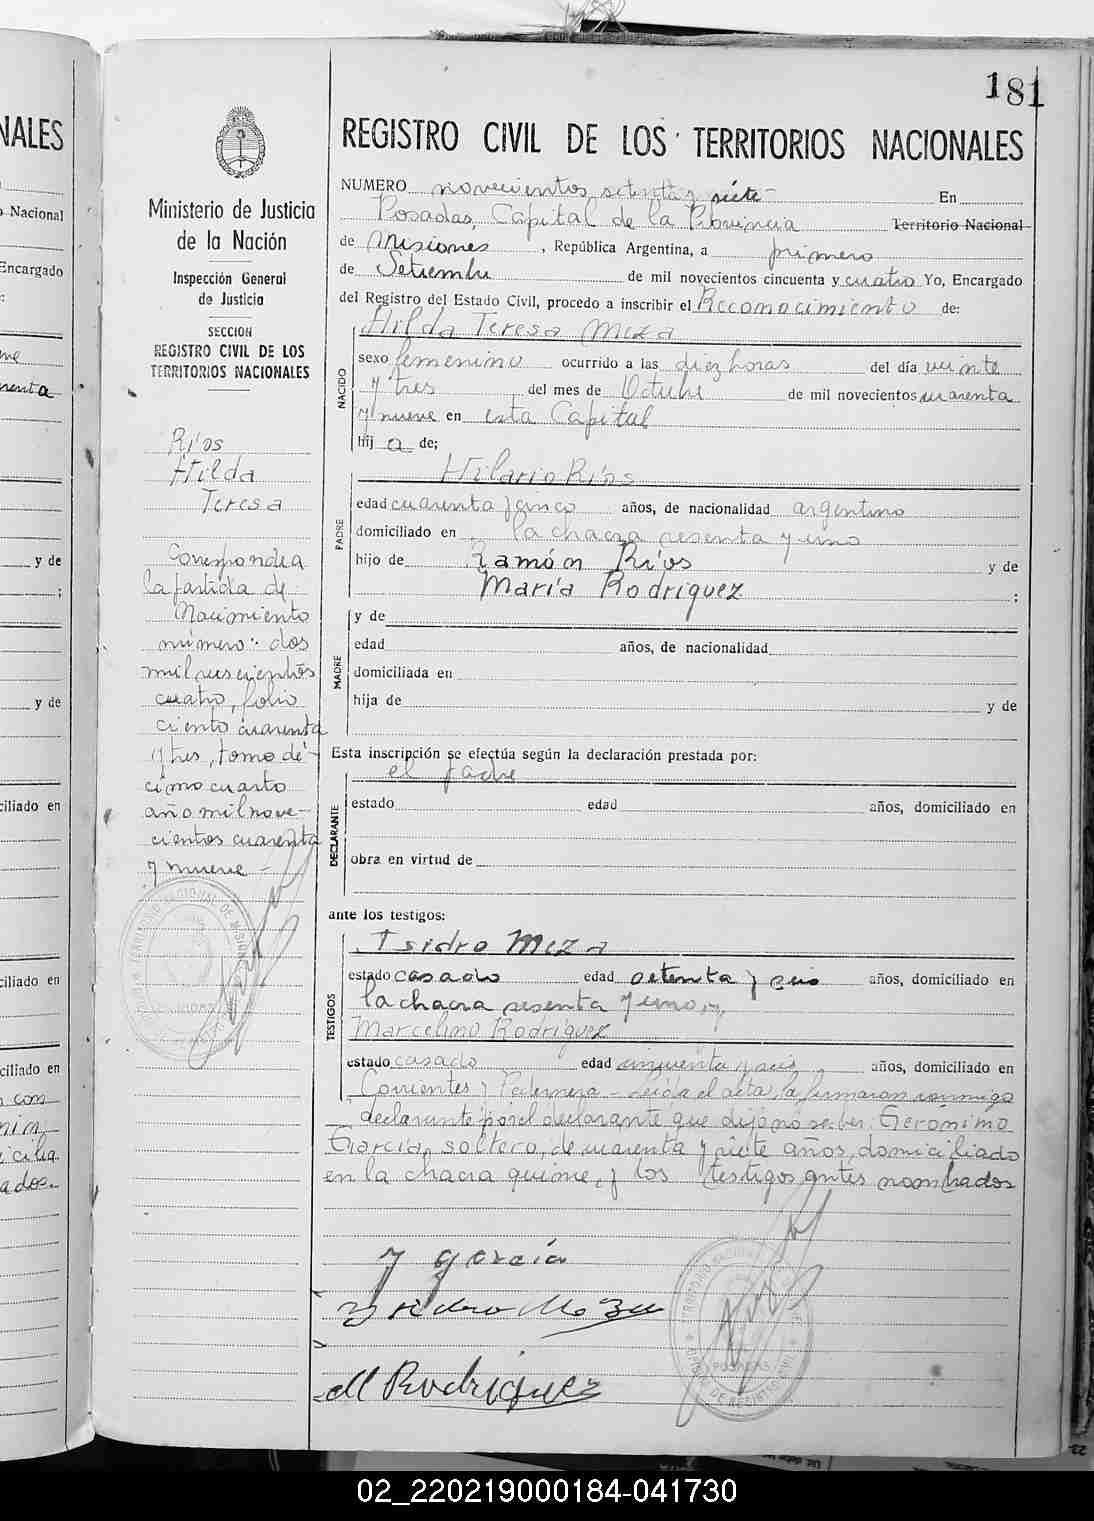 181
REGISTRO CIVIL DE LOS TERRITORIOS NACIONALES
Ministerio de Justicia
de la Nación
Inspección General
de Justicia
SECCION
REGISTRO CIVIL DE LOS
TERRITORIOS NACIONALES
Ríos
Hilda
Teresa
Corresponde a
la partida de
Nacimiento
número: dos
mil seiscientos
cuatro, folio
ciento cuarenta
y tres, tomo dé-
cimo cuarto
año mil nove-
cientos cuarenta
y nueve -
NUMERO novecientos setenta y siete - En
Posadas, Capital de la Provincia Territorio Nacional
de Misiones, República Argentina, a primero
de Setiembre de mil novecientos cincuenta y cuatro Yo, Encargado
del Registro del Estado Civil, procedo a inscribir el Reconocimiento de:
Hilda Teresa Meza
NACIDO
sexo femenino ocurrido a las diez horas del día veinte
y tres del mes de Octubre de mil novecientos cuarenta
y nueve en esta Capital
hij a de;
Hilario Ríos
PADRE
edad cuarenta y cinco años, de nacionalidad argentino
domiciliado en la chacra sesenta y uno
hijo de Ramón Ríos y de
María Rodríguez ;
MADRE
y de
edad años, de nacionalidad
domiciliada en
hija de y de
Esta inscripción se efectúa según la declaración prestada por:
el padre
DECLARANTE
estado edad años, domiciliado en
obra en virtud de
ante los testigos:
TESTIGOS
Isidro Meza
estado casado edad setenta y seis años, domiciliado en
la chacra sesenta y uno, y
Marcelino Rodríguez
estado casado edad cincuenta y seis años, domiciliado en
Corrientes y Pedernera - Leída el acta, la firmaron conmigo
declarante por el declarante que dijo no saber Gerónimo
García, soltero, de cuarenta y siete años, domiciliado
en la chacra quince, y los testigos antes nombrados
J García
Ysidro Meza
M Rodriguez
POSADAS
NALES
Nacional
Encargado
y de
;
y de
ciliado en
ciliado en
ciliado en
02_220219000184-041730